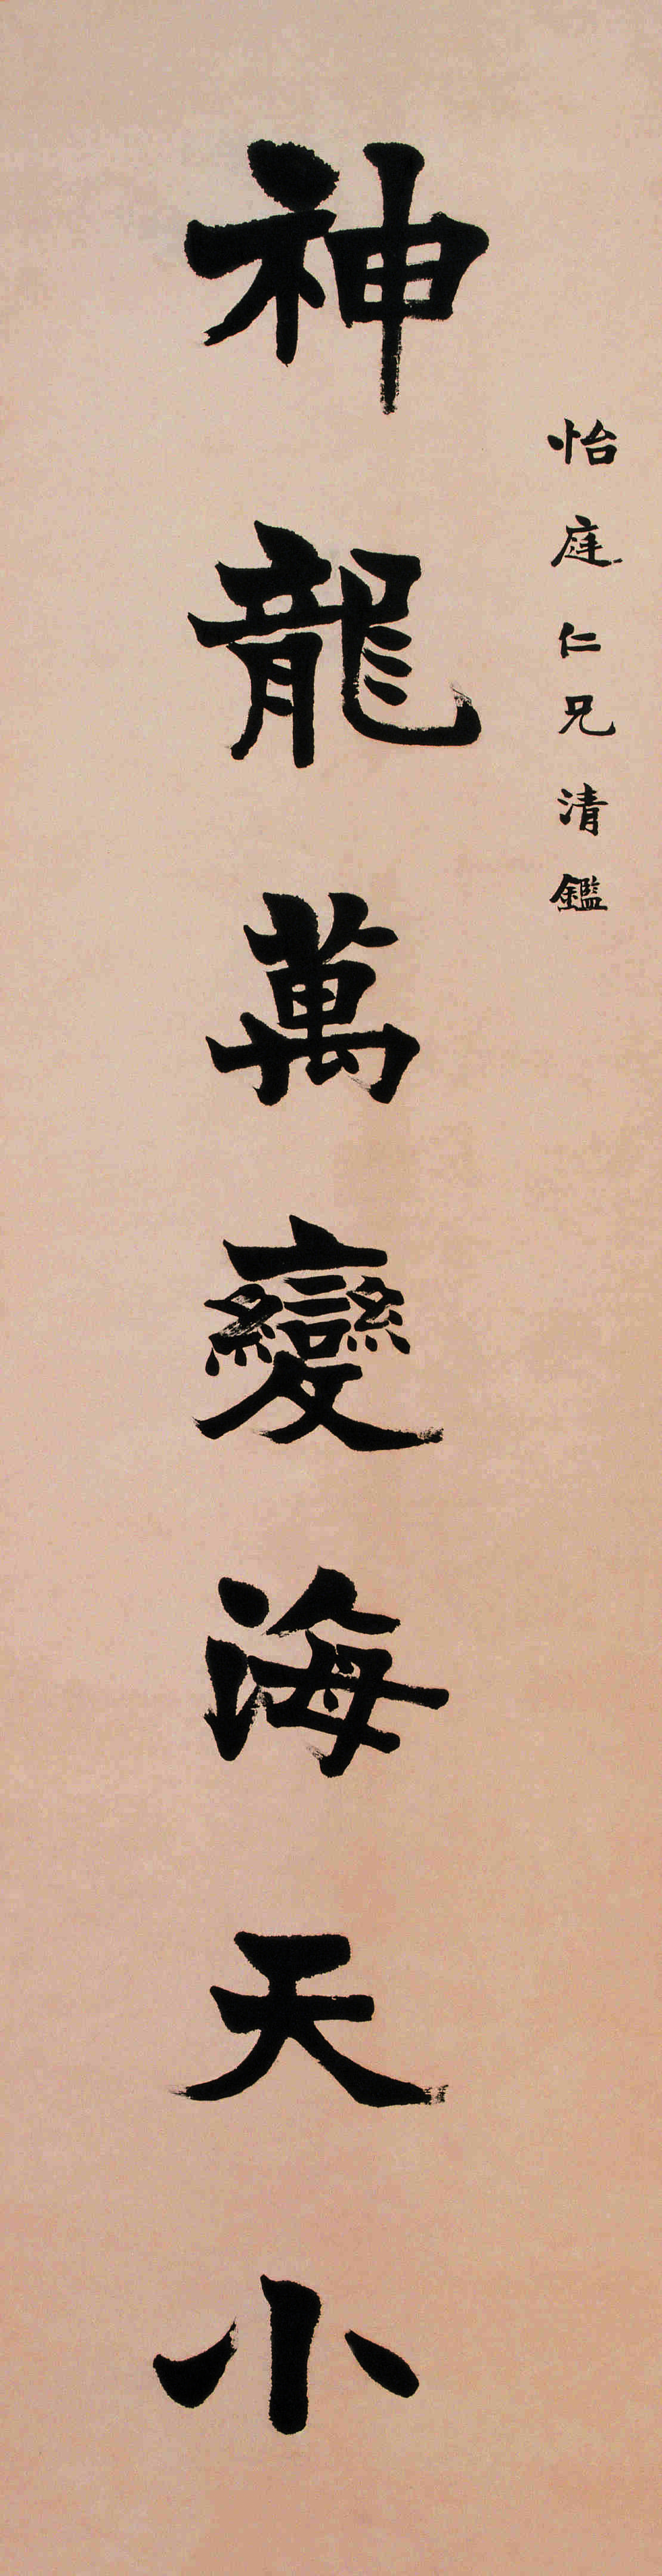 怡庭仁兄清鑑
神龍萬變海天小